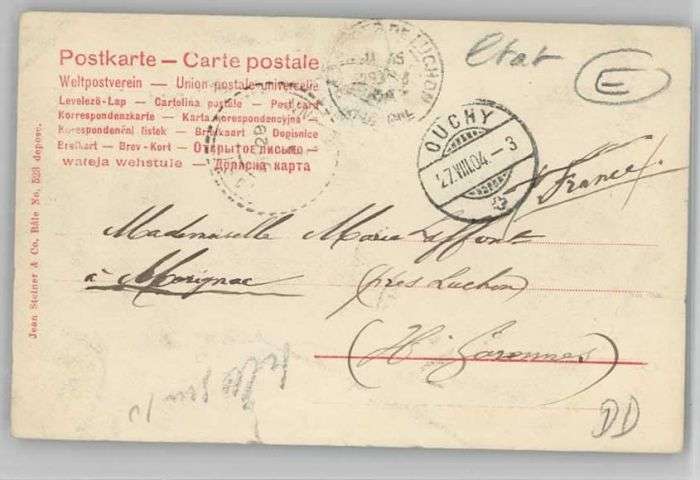 Postkarte — Carte postale
Weltpostverein — Union postale universelle
Levelező-Lap — Cartolina postale — Post card
Korrespondenzkarte — Karta korespondencyjna —
Korespondenční lístek — Briefkaart — Dopisnice
Brefkort — Brev-Kort — Открытое письмо —
Дописна карта
Jean Steiner & Co. Bâle No. 523 deposé.
DE LUCHON
29
OUCHY
27.VIII.04. - 3
Etat
E
France
Mademoiselle Marie Laffont
à Morignac (près Luchon)
(Hte Garonnes)
DD